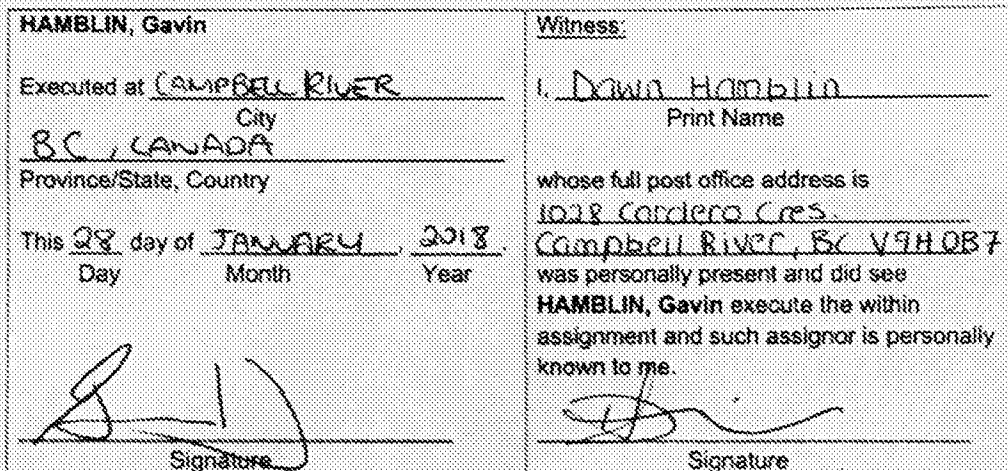 HAMBLIN, Gavin
Executed at CAMPBELL RIVER
City
BC, CANADA
Province/State, Country
This 28 day of JANUARY, 2018.
Day Month Year
Signature
Witness:
I, Dawn Hamblin
Print Name
whose full post office address is
1028 Cordero Cres.
Campbell River, BC V9H 0B7
was personally present and did see
HAMBLIN, Gavin execute the within
assignment and such assignor is personally
known to me.
Signature